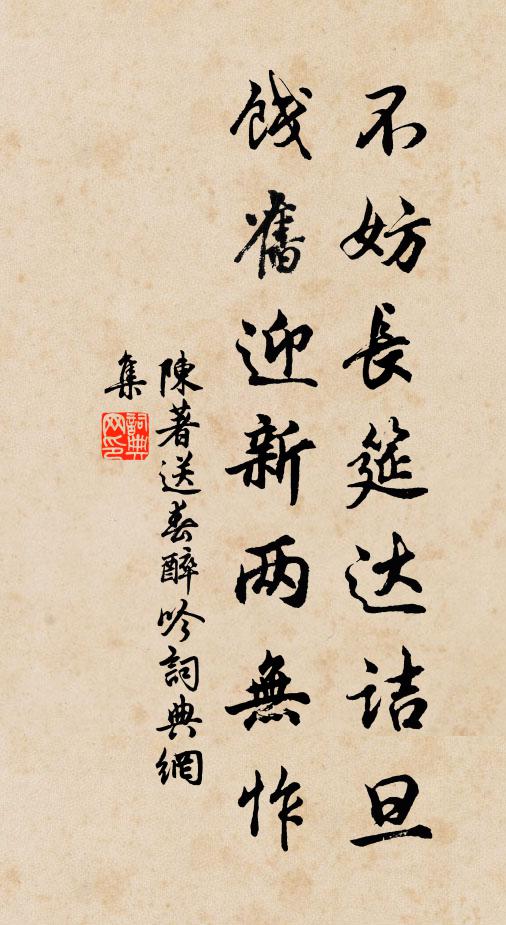 不妨長筵达詰旦
餞舊迎新两無怍
陳著送春醉吟詞典網
集
詞典网印